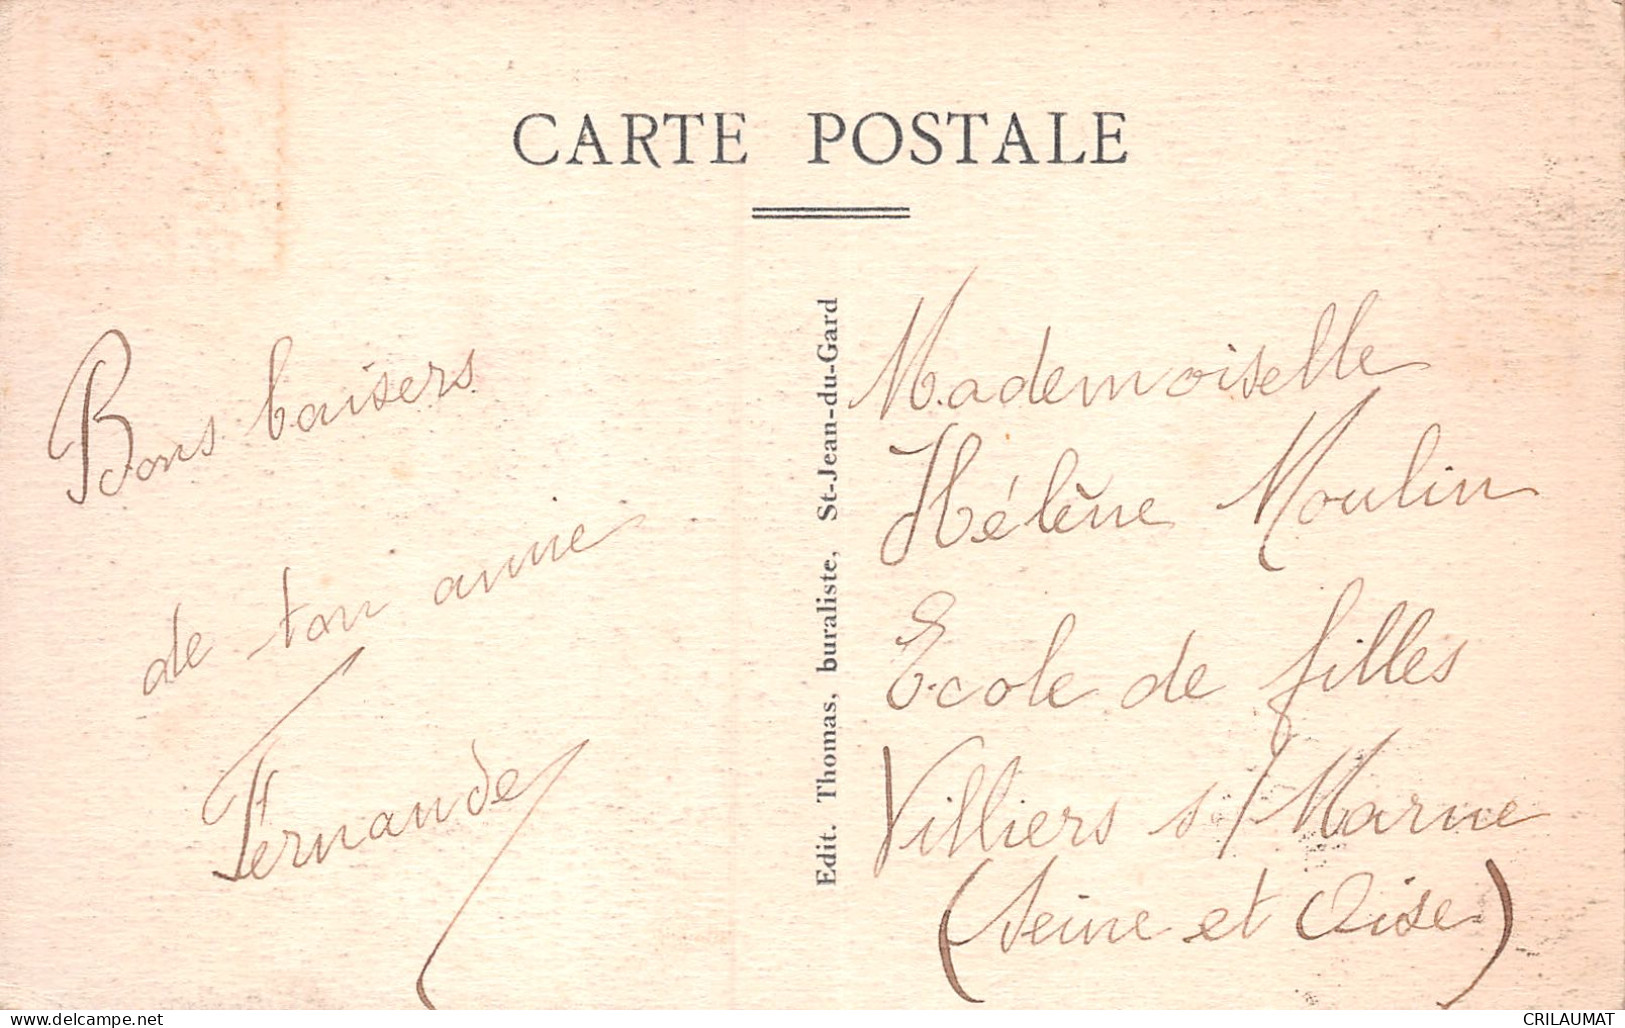 CARTE POSTALE
Bons baisers
de ton amie
Fernande
Edit. Thomas, buraliste, St-Jean-du-Gard
Mademoiselle
Hélène Moulin
Ecole de filles
Villiers s/Marne
(Seine et Oise)
www.delcampe.net
CRILAUMAT